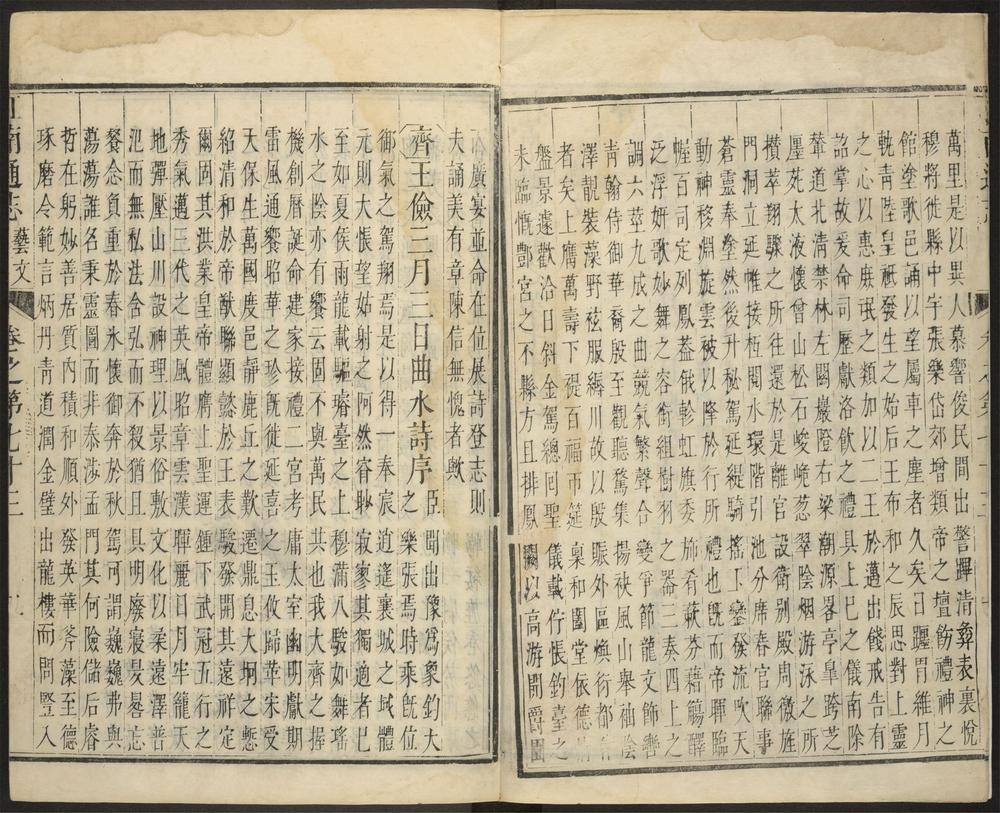 萬里是以異人慕響俊民間出警蹕清彝表裏悅
穆將徙縣中宇張樂岱郊增類帝之壇飭禮神之
館塗歌邑誦以望屬車之塵者久矣日躔胃維月
軌青陸皇祗發生之始后王布和之辰思對上靈
之心以惠庶氓之類加以二王於邁出餞戒告有
詔掌故爰命司歷獻洛飲之禮具上巳之儀南除
輦道北清禁林左關巖隥右梁潮源畧亭皐跨芝
廛苑太液懷曾山松石峻垝葱翠陰烟游泳之所
攢萃翔驟之所往還於是離宮設衛別殿周徼旌
門洞立延帷接枑閱水環階引池分席春官聯事
蒼靈奉塗然後升秘駕延緹騎搖玉鑾發流吹天
動神移淵旋雲被以降於行所禮也旣而帝暉臨
幄百司定列鳳蓋俄軫虹旗委斾肴蔌芬藉觴醳
泛浮妍歌妙舞之容銜組樹羽之器三奏四上之
調六莖九成之曲競氣繁聲合變爭節龍文飾轡
青翰侍御華裔殷至觀聽騖集揚袂風山舉袖陰
澤靚裝藻野袨服縟川故以殷賑外區煥衍都內
者矣上膺萬壽下禔百福帀筵稟和闔堂依德情
盤景遽歡洽日斜金駕總駟聖儀載佇悵鈞臺之
未臨慨酆宮之不縣方且排鳳闕以高游開爵園
而廣宴並命在位展詩登志則
夫誦美有章陳信無愧者歟
齊王儉三月三日曲水詩序
臣聞出豫爲象鈞大
之樂張焉時乘旣位
御氣之駕翔焉是以得一奉宸逍遙襄城之域體
元則大悵望姑射之阿然窅眇寂寥其獨適者已
至如夏侯兩龍載驅璿臺之上穆滿八駿如舞瑤
水之陰亦有饗云固不與萬民共也我大齊之握
機創曆誕命建家接禮二宮考庸太室幽明獻期
雷風通饗昭華之珍旣徙延喜之玉攸歸革宋受
天保生萬國度邑靜鹿丘之歎遷鼎息大坰之慙
紹清和於帝猷聯顯懿於王表駿發開其遠祥定
爾固其洪業皇帝體膺上聖運鍾下武冠五行之
秀氣邁三代之英風昭章雲漢暉麗日月牢籠天
地彈壓山川設神理以景俗敷文化以柔遠澤普
汜而無私法含弘而不殺猶且具明廢寢昃晷忘
餐念負重於春氷懷御奔於秋駕可謂巍巍弗與
蕩蕩誰名秉靈圖而非泰涉孟門其何險儲后睿
哲在躬妙善居質內積和順外發英華斧藻至德
琢磨令範言炳丹青道潤金璧出龍樓而問豎入
江南通志 藝文 卷之第七十三